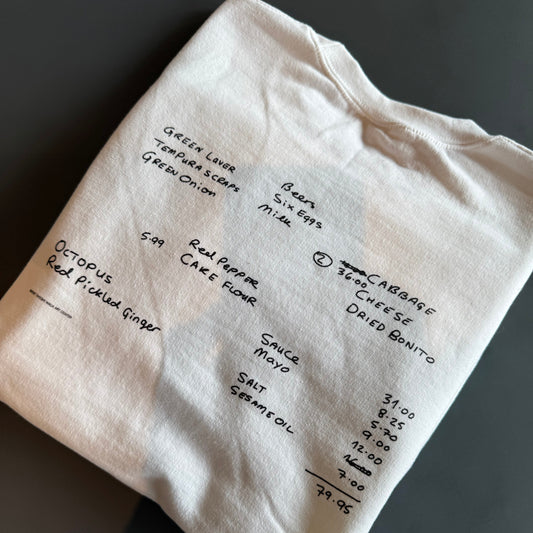 GREEN LAVER
TEMPURA SCRAPS
GREEN ONION
Beers
Six Eggs
Milk
5.99
Red Pepper
CAKE FLOUR
OCTOPUS
Red Pickled Ginger
2
36.00
CABBAGE
CHEESE
DRIED BONITO
SAUCE
MAYO
SALT
SESAME OIL
31.00
8.25
5.70
9.00
12.00
7.00
79.95